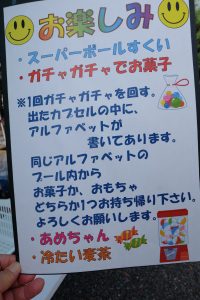 お楽しみ
・スーパーボールすくい
・ガチャガチャでお菓子
※1回ガチャガチャを回す。
出たカプセルの中に、
アルファベットが
書いてあります。
同じアルファベットの
プール内から
お菓子か、おもちゃ
どちらか1つお持ち帰り下さい。
よろしくお願いします。
・あめちゃん
・冷たい麦茶